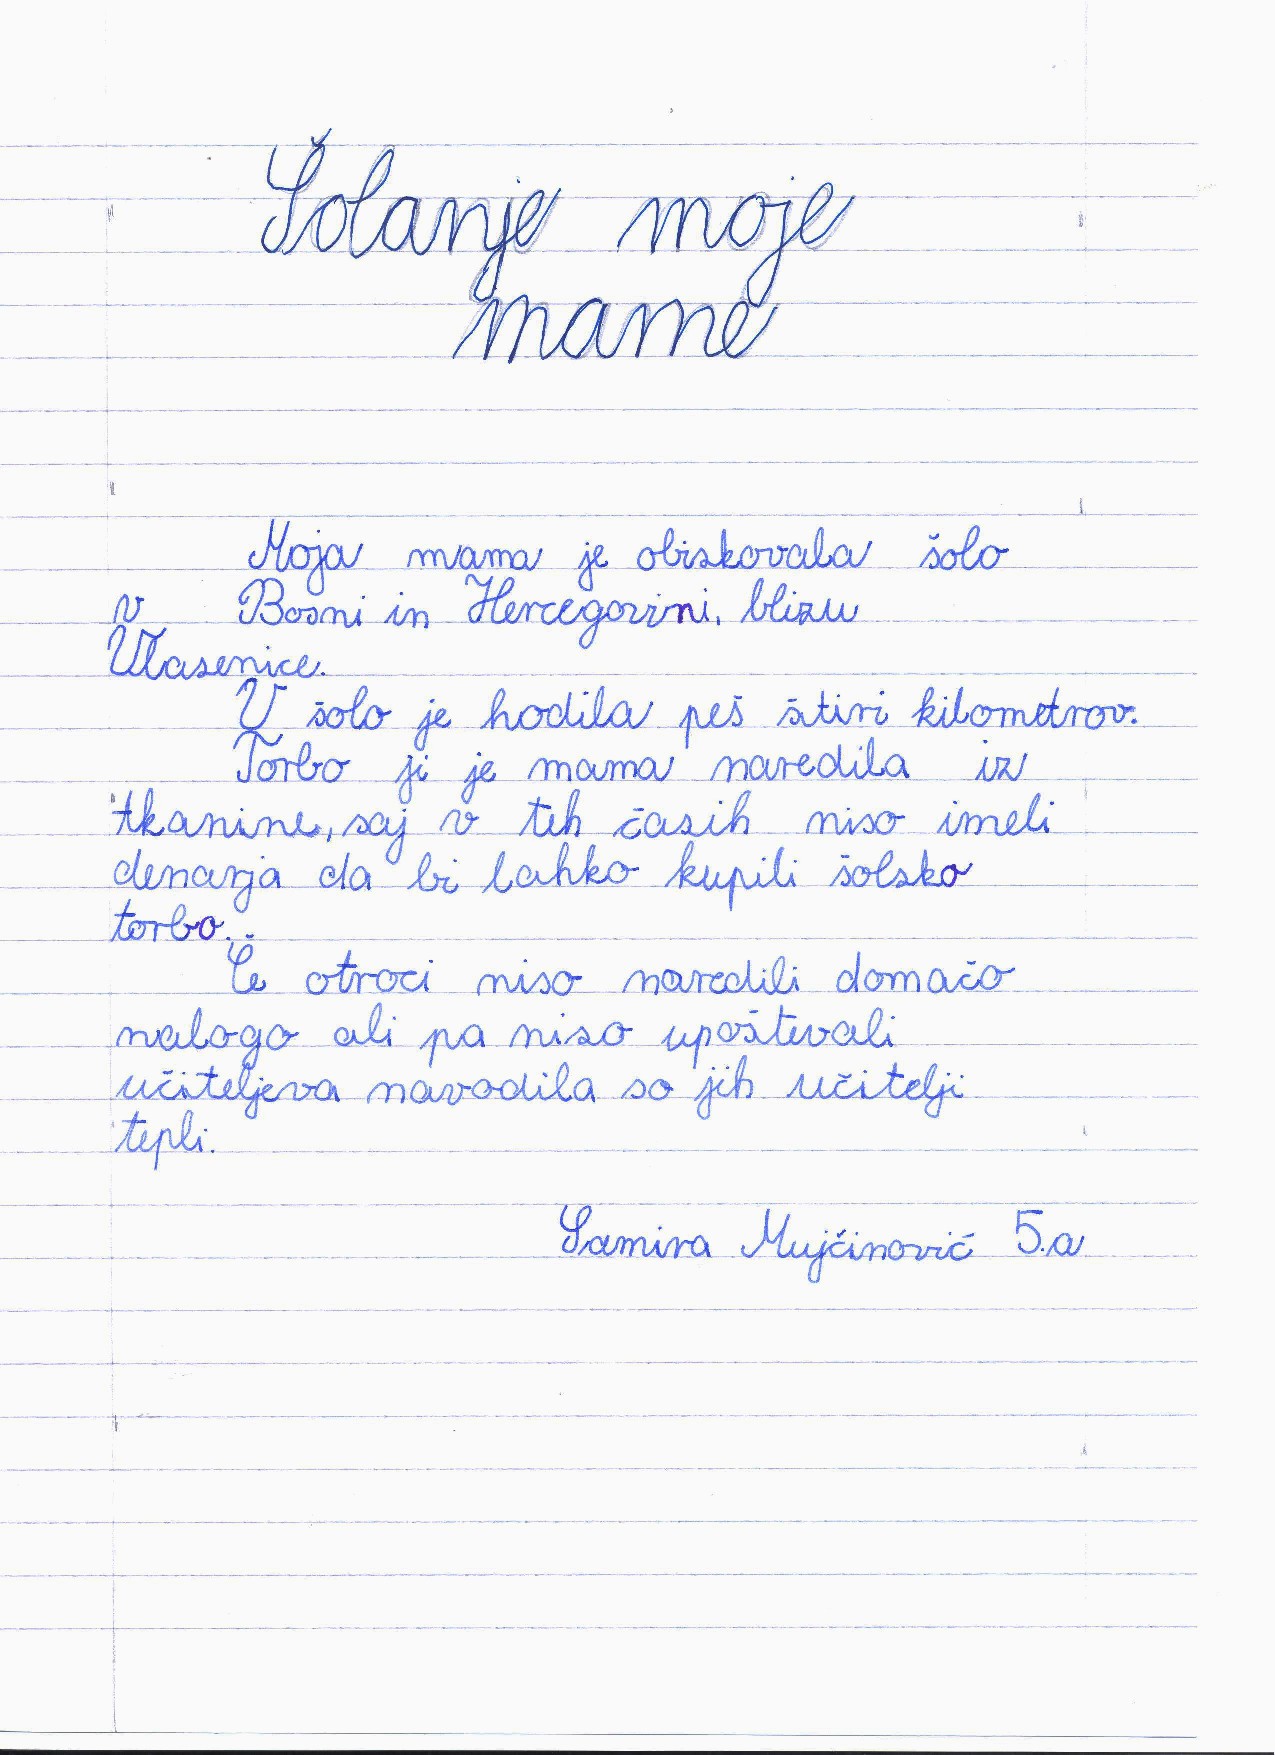 Šolanje moje
mame
Moja mama je obiskovala šolo
v Bosni in Hercegovini, blizu
Vlasenice.
V šolo je hodila peš štiri kilometrov.
Torbo ji je mama naredila iz
tkanine, saj v teh časih niso imeli
denarja da bi lahko kupili šolsko
torbo.
Če otroci niso naredili domačo
nalogo ali pa niso upoštevali
učiteljeva navodila so jih učitelji
tepli.
Samira Mujčinović 5.a